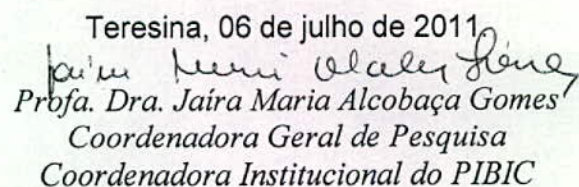 Teresina, 06 de julho de 2011
Profa. Dra. Jaíra Maria Alcobaça Gomes
Coordenadora Geral de Pesquisa
Coordenadora Institucional do PIBIC